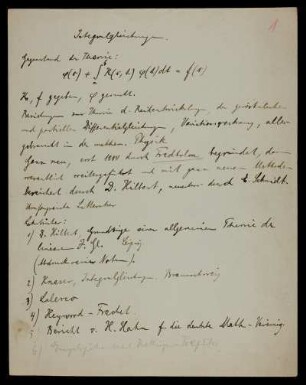 Integralgleichungen.
1
Gegenstand der Theorie:
φ(s) + ∫ K(s,t) φ(t) dt = f(s)
K, f gegeben, φ gesucht.
Beziehungen zur Theorie d. Reihenentwickelungen, der gewöhnlichen
und partiellen Differentialgleichungen, Variationsrechnung, aller
gebraucht in der mathem. Physik.
Ganz neu, erst durch Fredholm begründet, dann
wesentlich weitergeführt und mit ganz neuen Methoden
bereichert durch D. Hilbert, durch E. Schmidt.
Umfangreiche Litteratur
Lehrbücher:
1) D. Hilbert, Grundzüge einer allgemeinen Theorie der
linearen I. Gl. Leipzig
(Abdruck seiner Noten).
2) Kneser, Integralgleichungen. Braunschweig
3) Lalesco
4) Heywood - Fréchet.
5) Bericht v. H. Hahn f. die deutsche Math.-Vereinig.
6)